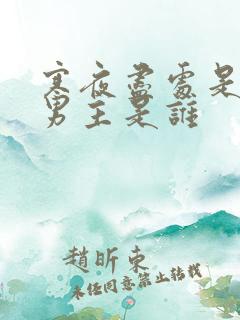 寒夜盡處是
男主是誰
趙昕東
未任同意禁止转载